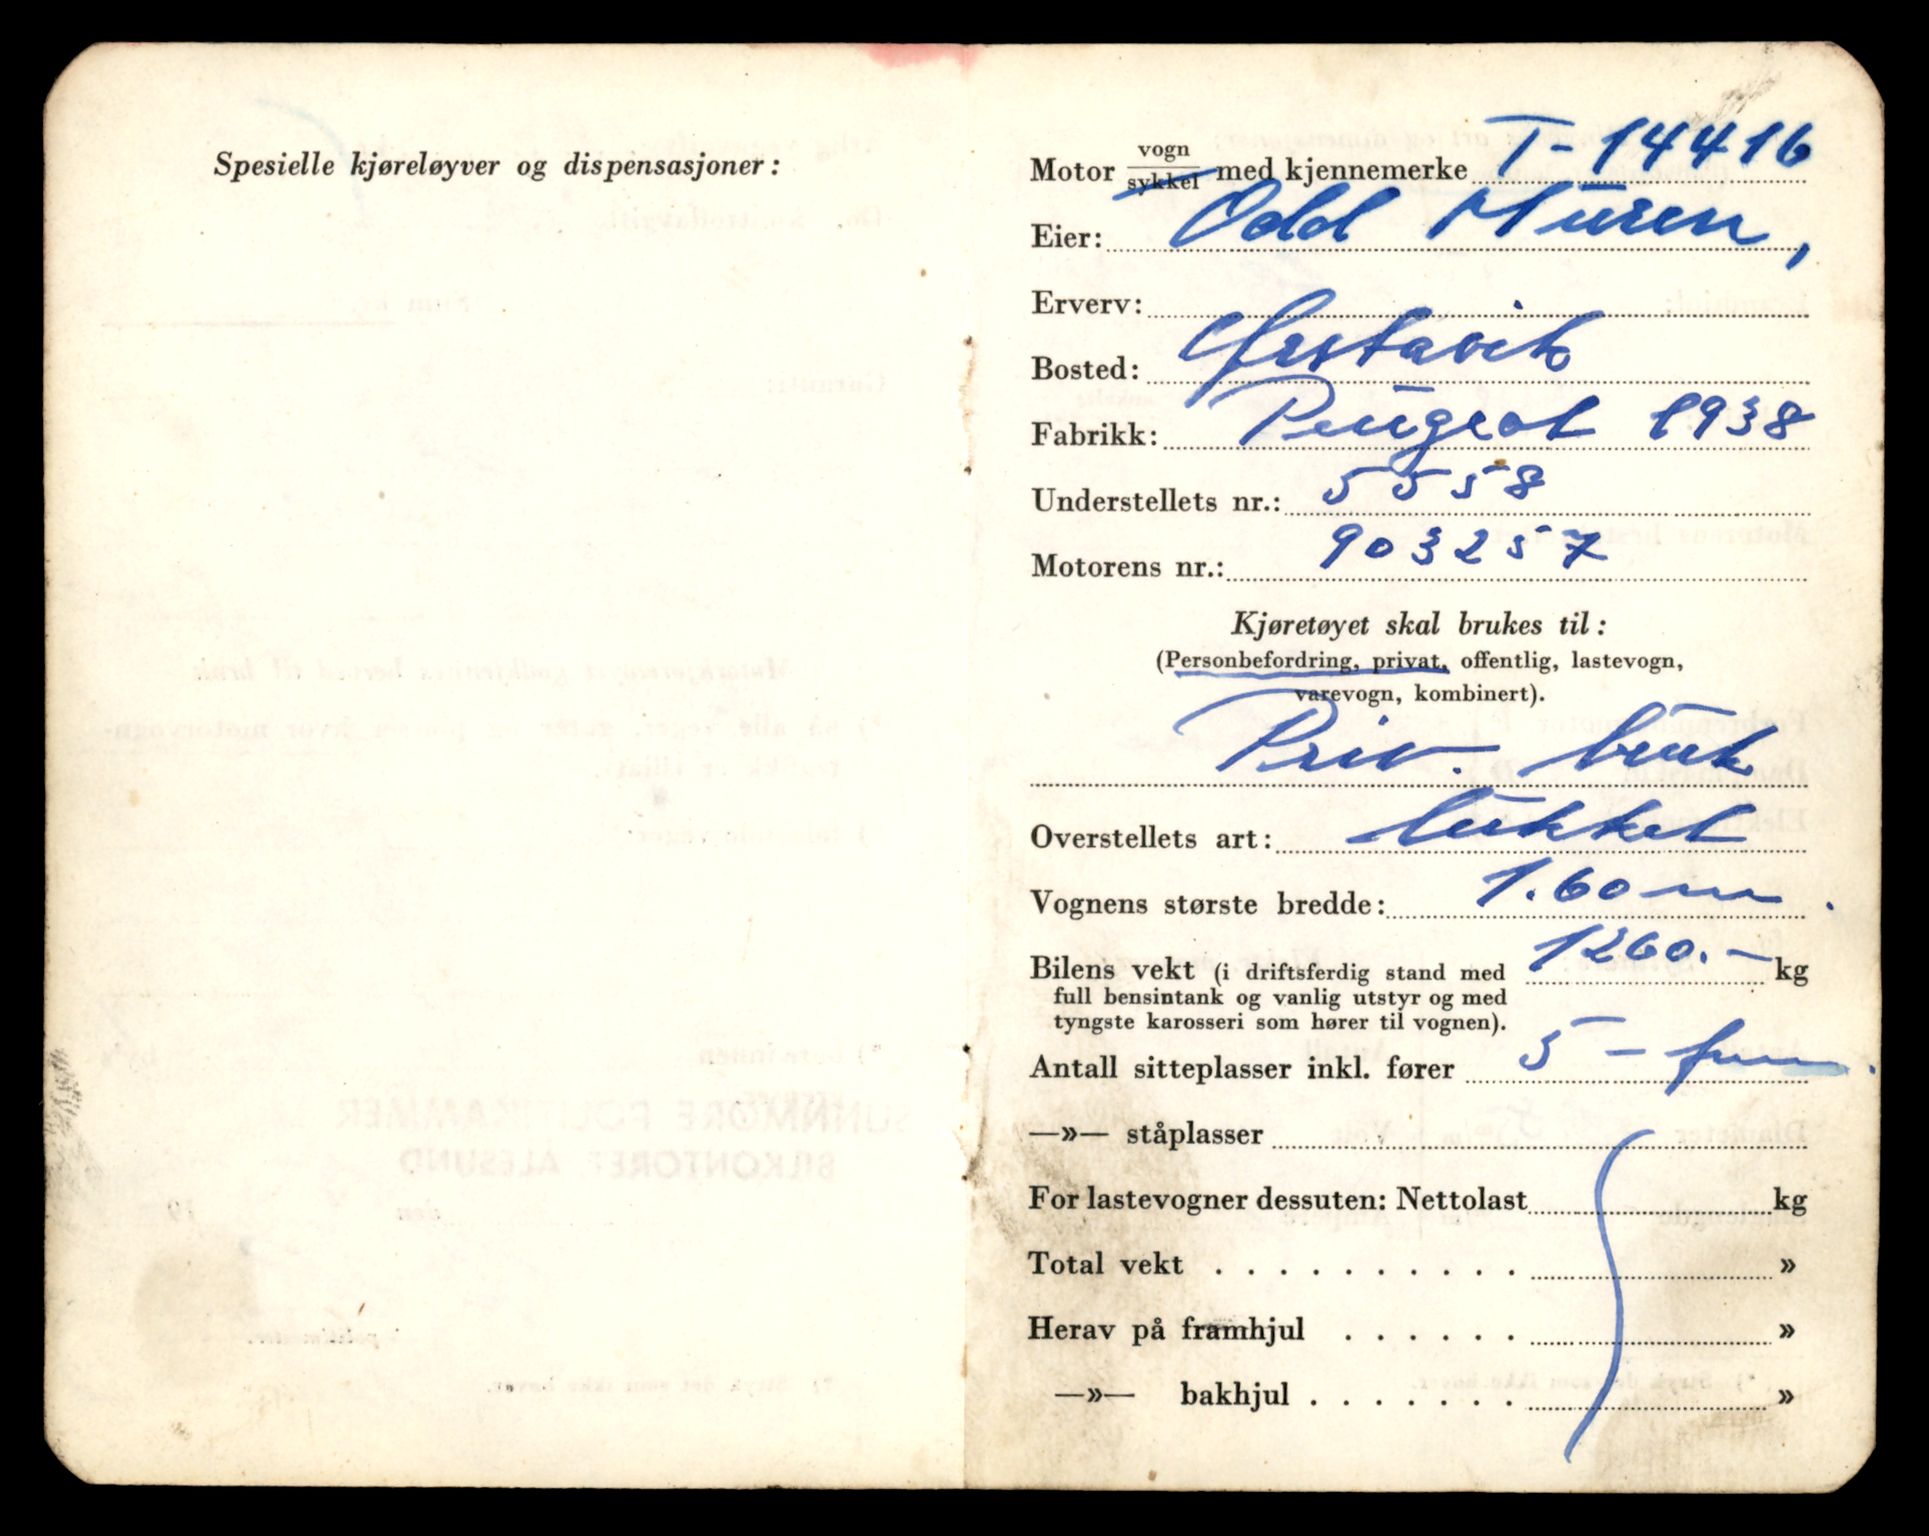 Spesielle kjøreløyver og dispensasjoner:
Motor vogn/sykkel med kjennemerke T-14416
Eier: Odd Muren,
Erverv:
Bosted: Ørstavik
Fabrikk: Peugeot 1938
Understellets nr.: 5558
Motorens nr.: 903257
Kjøretøyet skal brukes til:
(Personbefordring, privat, offentlig, lastevogn,
varevogn, kombinert).
Priv. bruk
Overstellets art: lukket
Vognens største bredde: 1.60 m.
Bilens vekt (i driftsferdig stand med 1260.- kg
full bensintank og vanlig utstyr og med
tyngste karosseri som hører til vognen).
Antall sitteplasser inkl. fører 5 - fem.
—»— ståplasser
For lastevogner dessuten: Nettolast kg
Total vekt . . . . . . . . . . »
Herav på framhjul . . . . . . »
—»— bakhjul . . . . . . . »